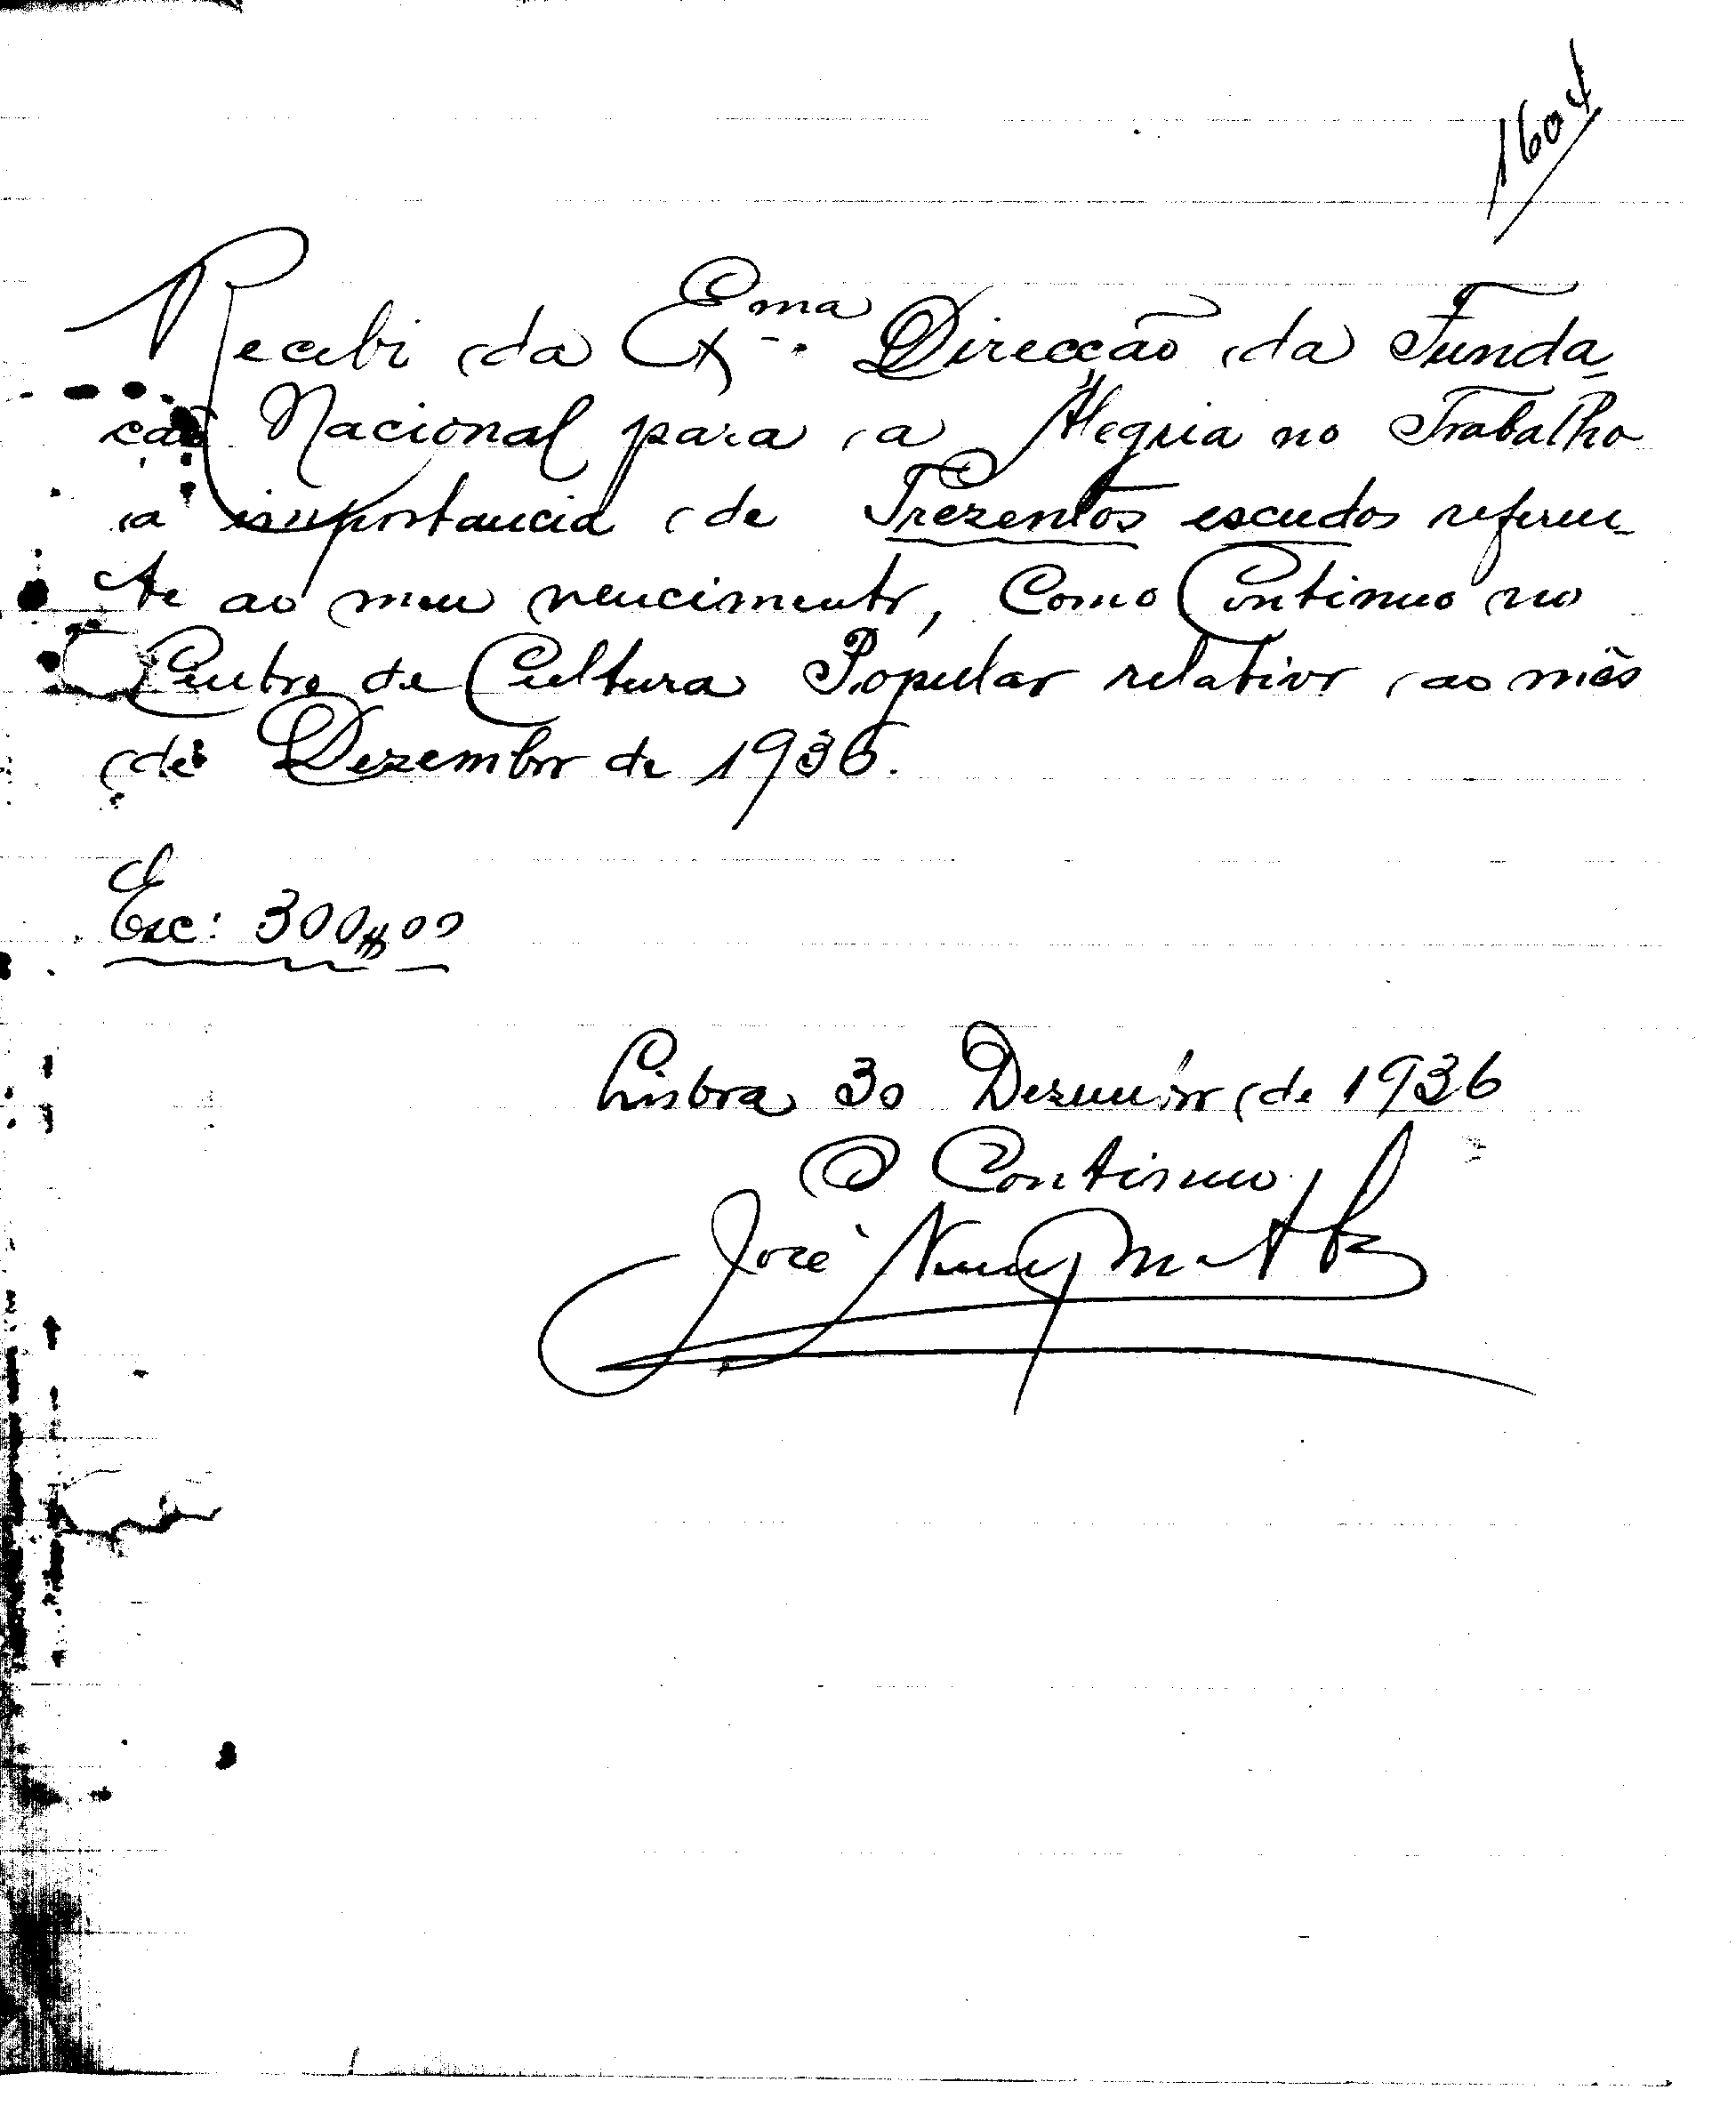 1604
Recebi da Exma. Direcção da Funda-
ção Nacional para a Alegria no Trabalho
a importancia de Trezentos escudos referen-
te ao meu vencimento, Como Continuo no
Centro de Cultura Popular relativo ao mês
de Dezembro de 1936.
Esc: 300$00
Lisboa 30 Dezembro de 1936
O Continuo
José Nunes